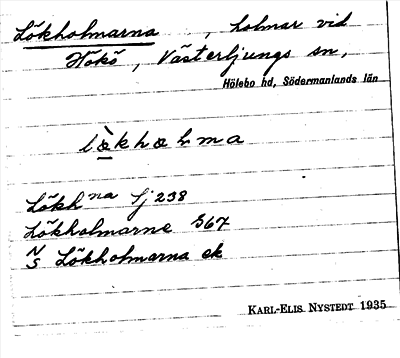 Lökholmarna, holmar vid
Hökö, Västerljungs sn,
Hölebo hd, Södermanlands län
Lökhna Sj 238
Lökholmarne G67
N
S Lökholmarna ek
KARL-ELIS NYSTEDT 1935